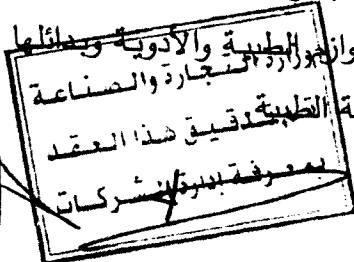 الطبية والأدوية وبدائلها
وزارة التجارة والصناعة
تدقيق هذا العقد
بمعرفة إدارة الشركات